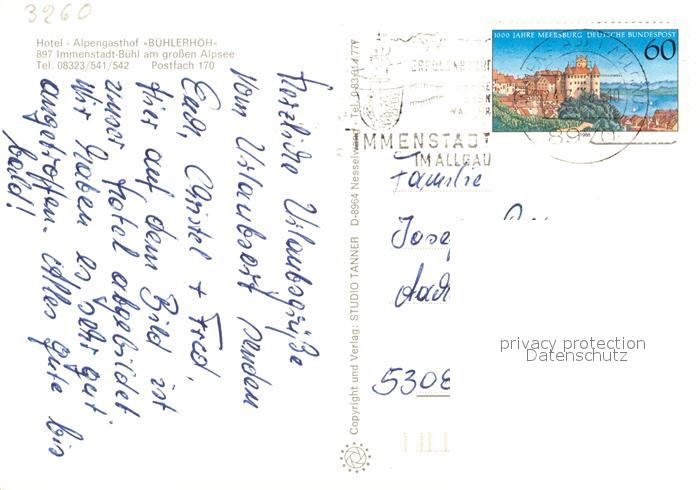 3260
Hotel - Alpengasthof «BÜHLERHÖH»
897 Immenstadt-Bühl am großen Alpsee
Tel. 08323/541/542 Postfach 170
Herzliche Urlaubsgrüße
vom Urlaubsort senden
Euch, Christel + Fred.
Hier auf dem Bild ist
unser Hotel abgebildet
Wir haben es sehr gut
angetroffen. Alles gute bis
bald!
Copyright und Verlag: STUDIO TANNER D-8964 Nesselwang
1000 JAHRE MEERSBURG DEUTSCHE BUNDESPOST
60
MMENSTADT
IM ALLGÄU
Familie
Jose
530
privacy protection
Datenschutz